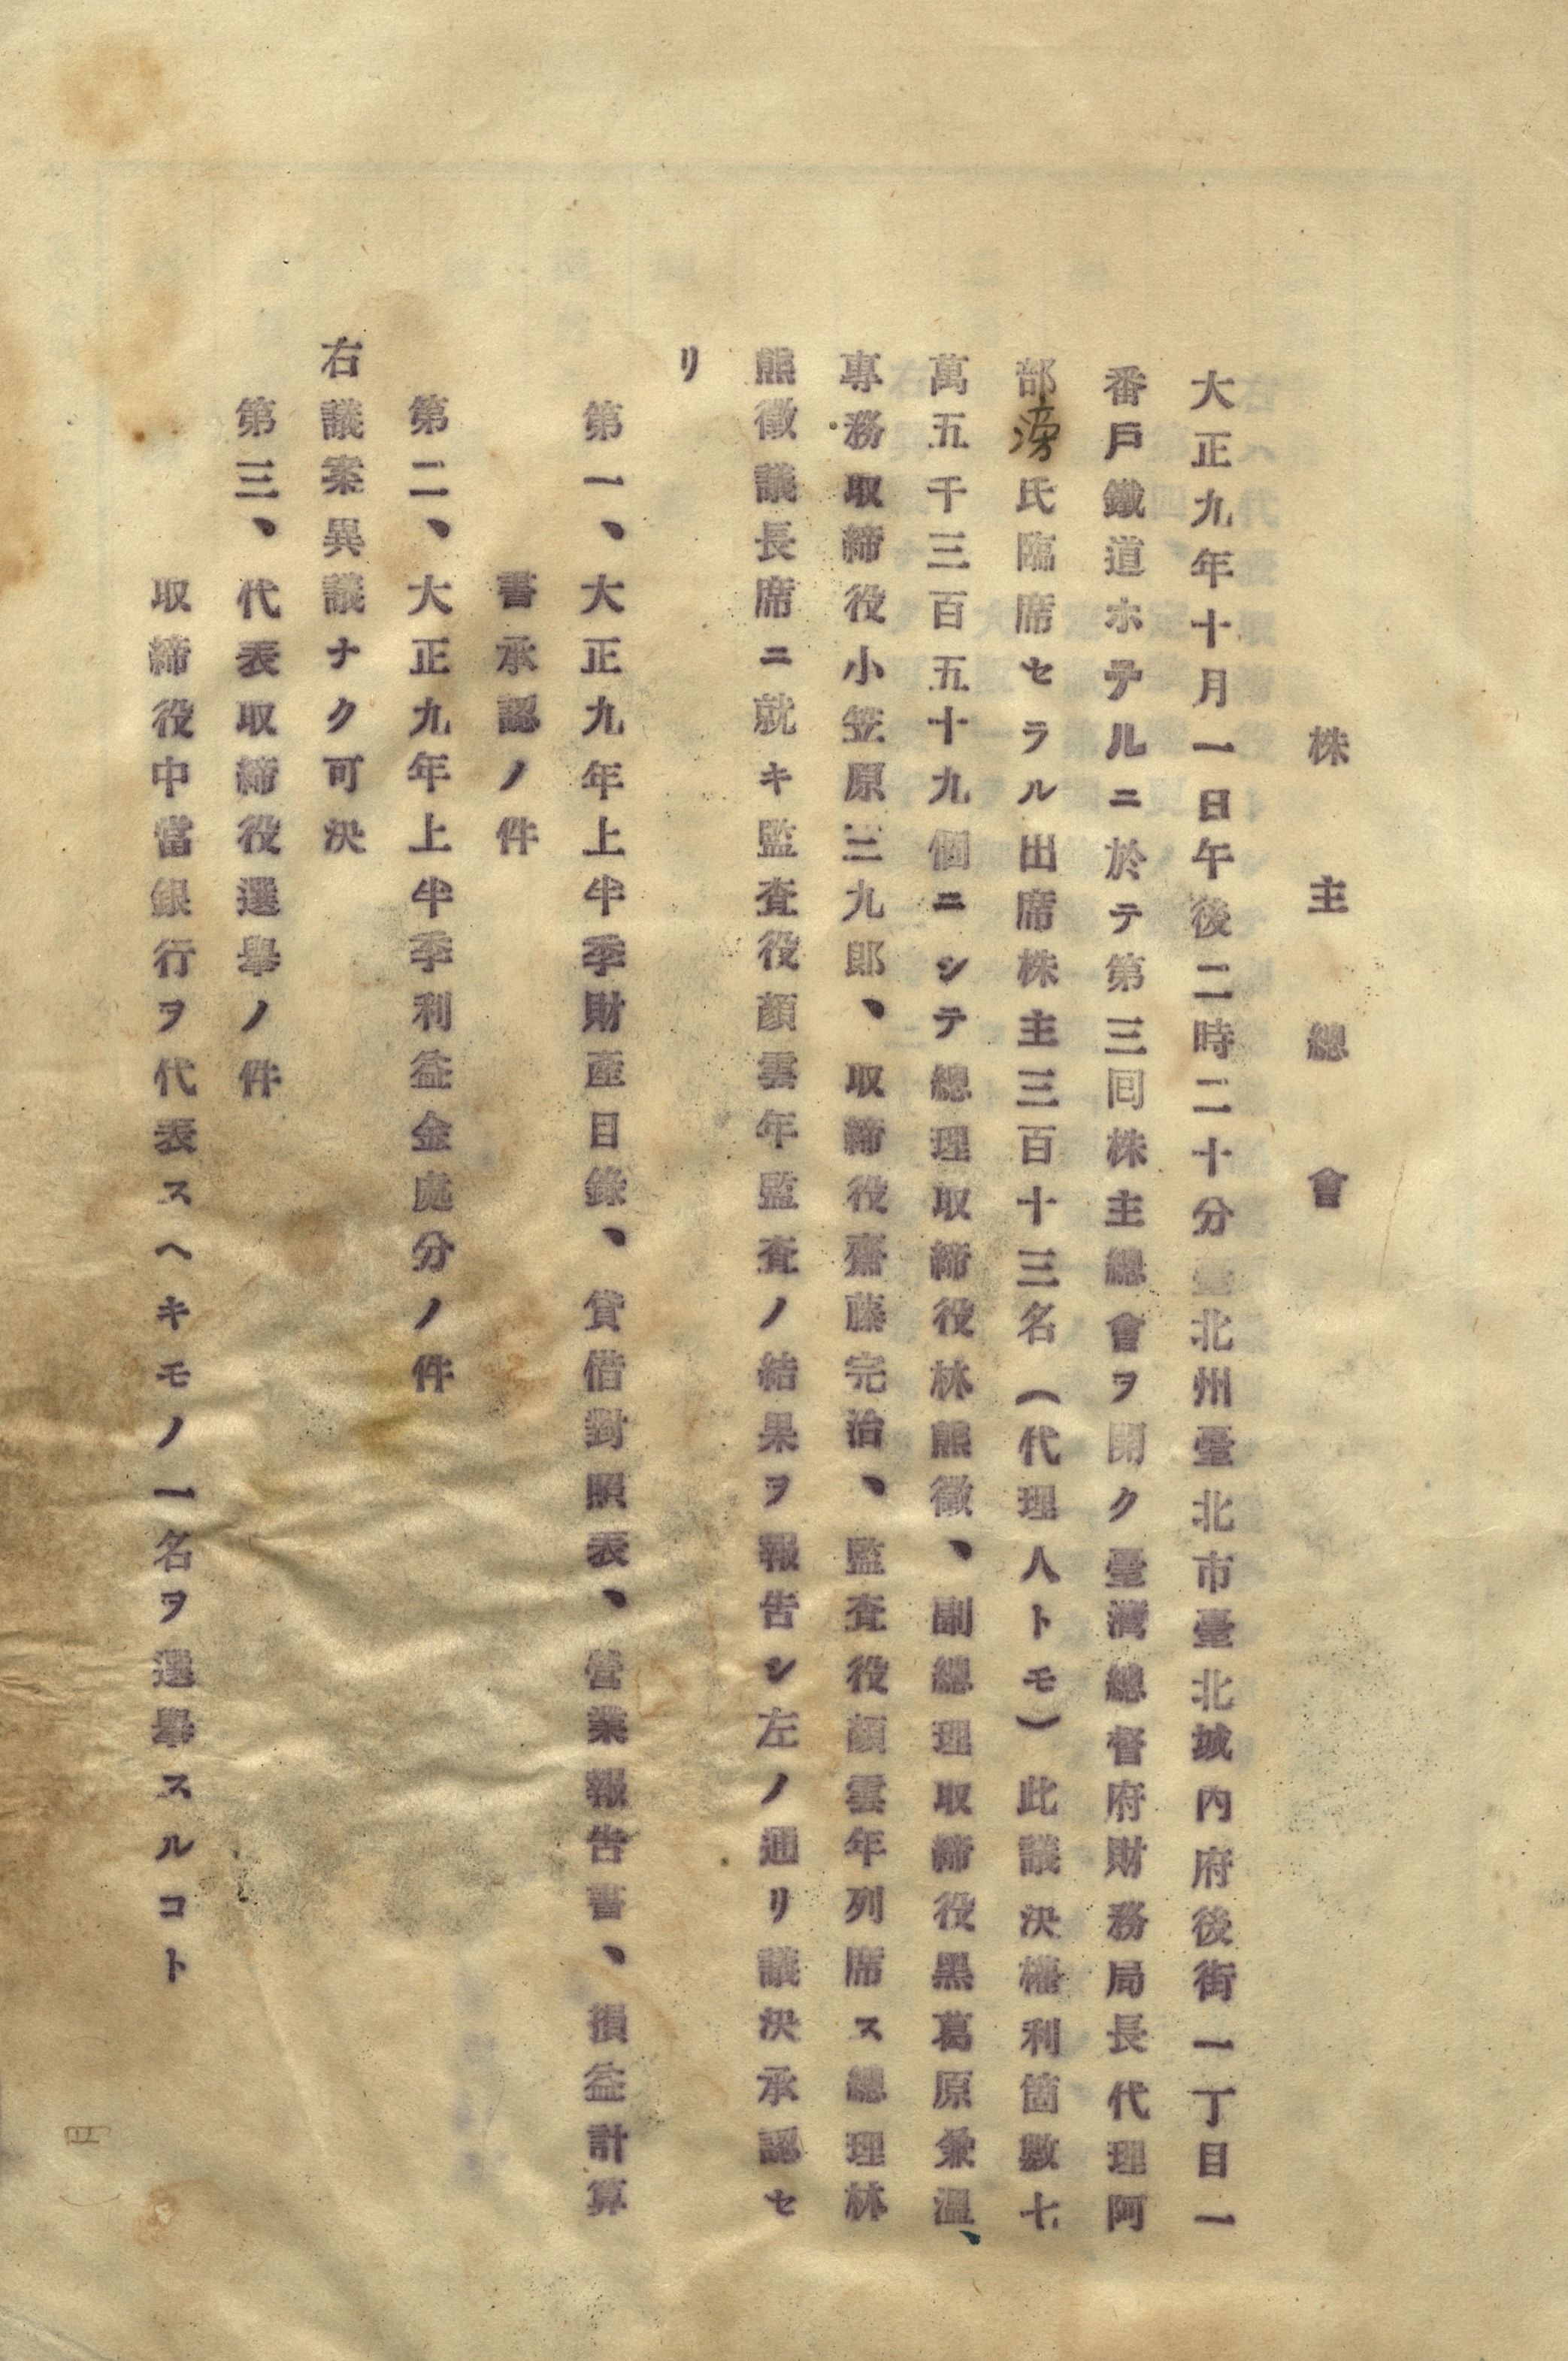 株主總會
大正九年十月一日午後二時二十分臺北州臺北市臺北城內府後街一丁目一
番戶鐵道ホテルニ於テ第三回株主總會ヲ開ク臺灣總督府財務局長代理阿
部滂氏臨席セラル出席株主三百十三名(代理人トモ)此議決權利箇數七
萬五千三百五十九個ニシテ總理取締役林熊徵、副總理取締役黑葛原兼溫、
專務取締役小笠原三九郎、取締役齋藤完治、監査役顏雲年列席ス總理林
熊徵議長席ニ就キ監査役顏雲年監査ノ結果ヲ報告シ左ノ通リ議決承認セ
リ
第一、大正九年上半季財產目錄、貸借對照表、營業報告書、損益計算
書承認ノ件
第二、大正九年上半季利益金處分ノ件
右議案異議ナク可決
第三、代表取締役選舉ノ件
取締役中當銀行ヲ代表スヘキモノ一名ヲ選舉スルコト